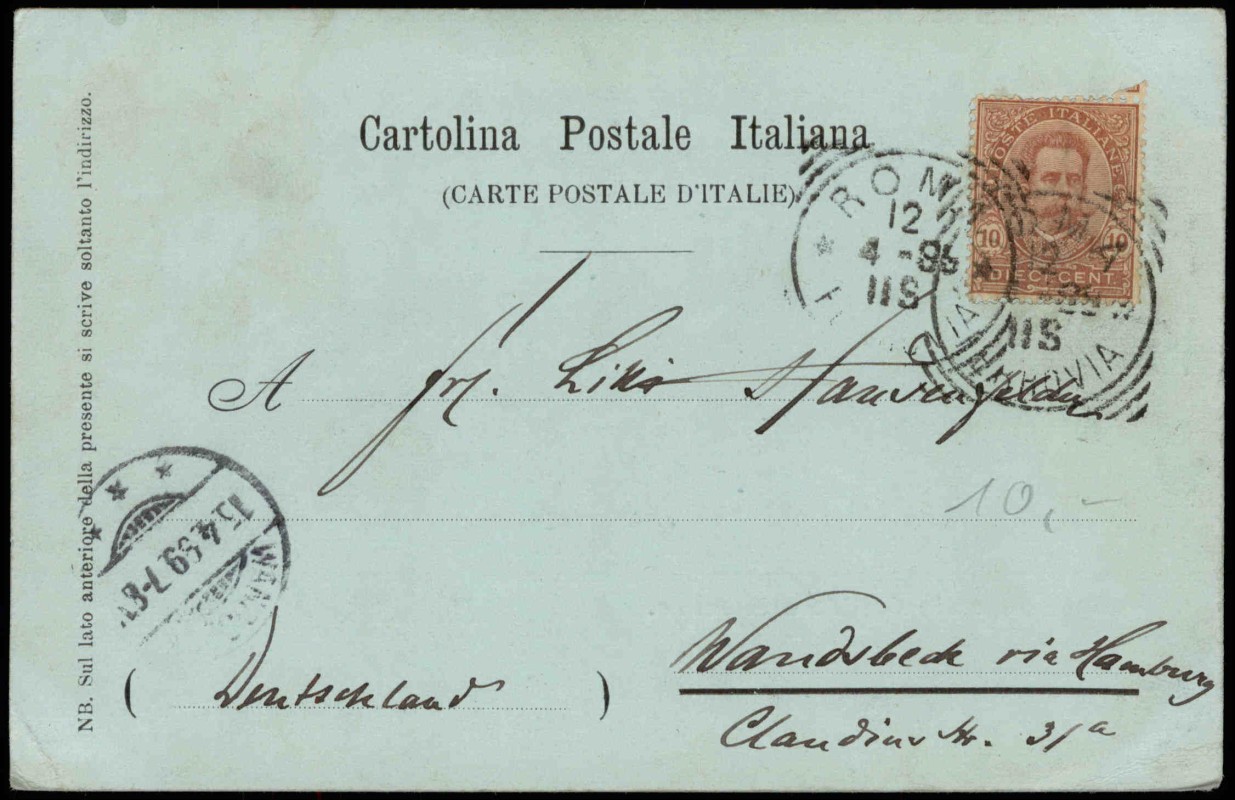 Cartolina Postale Italiana
(CARTE POSTALE D'ITALIE)
POSTE ITALIANE
10 10
DIECI CENT.
ROMA
12
4-98
11S
12
11S
FERROVIA
A Frl.
10,-
15.4.99.7-8V
WANDS
Wandsbeck via Hamburg
(Deutschland)
Claudius str. 31a
NB. Sul lato anteriore della presente si scrive soltanto l'indirizzo.